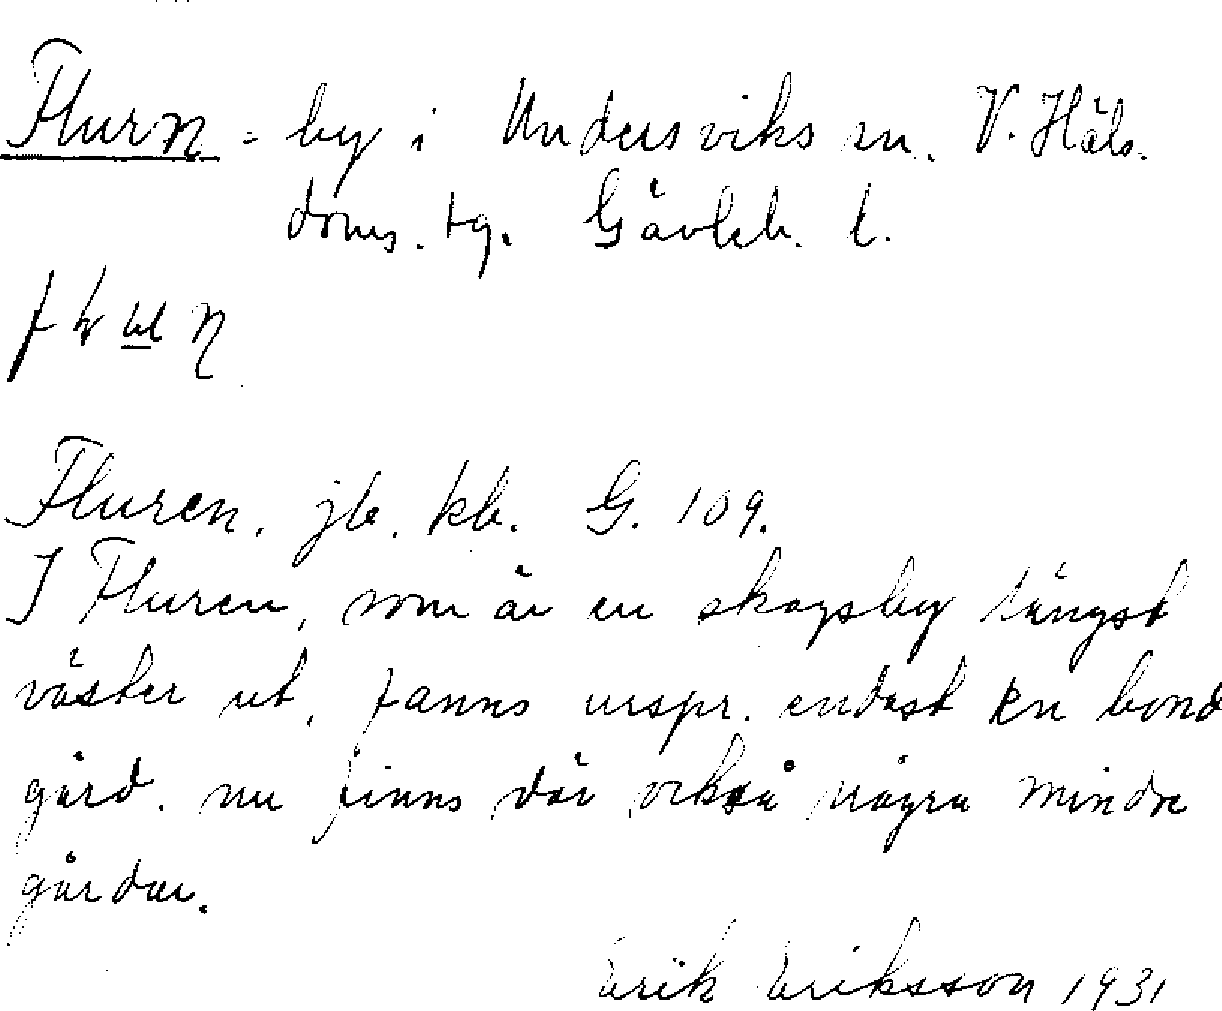 Flurn = by i Undersviks sn. V. Häls.
doms. tg. Gävleb. l.
Fluren. jb. kb. G. 109.
I Fluren, som är en skogsby längst
väster ut, fanns urspr. endast en bond
gård. nu finns där också några mindre
gårdar.
Erik Eriksson 1931